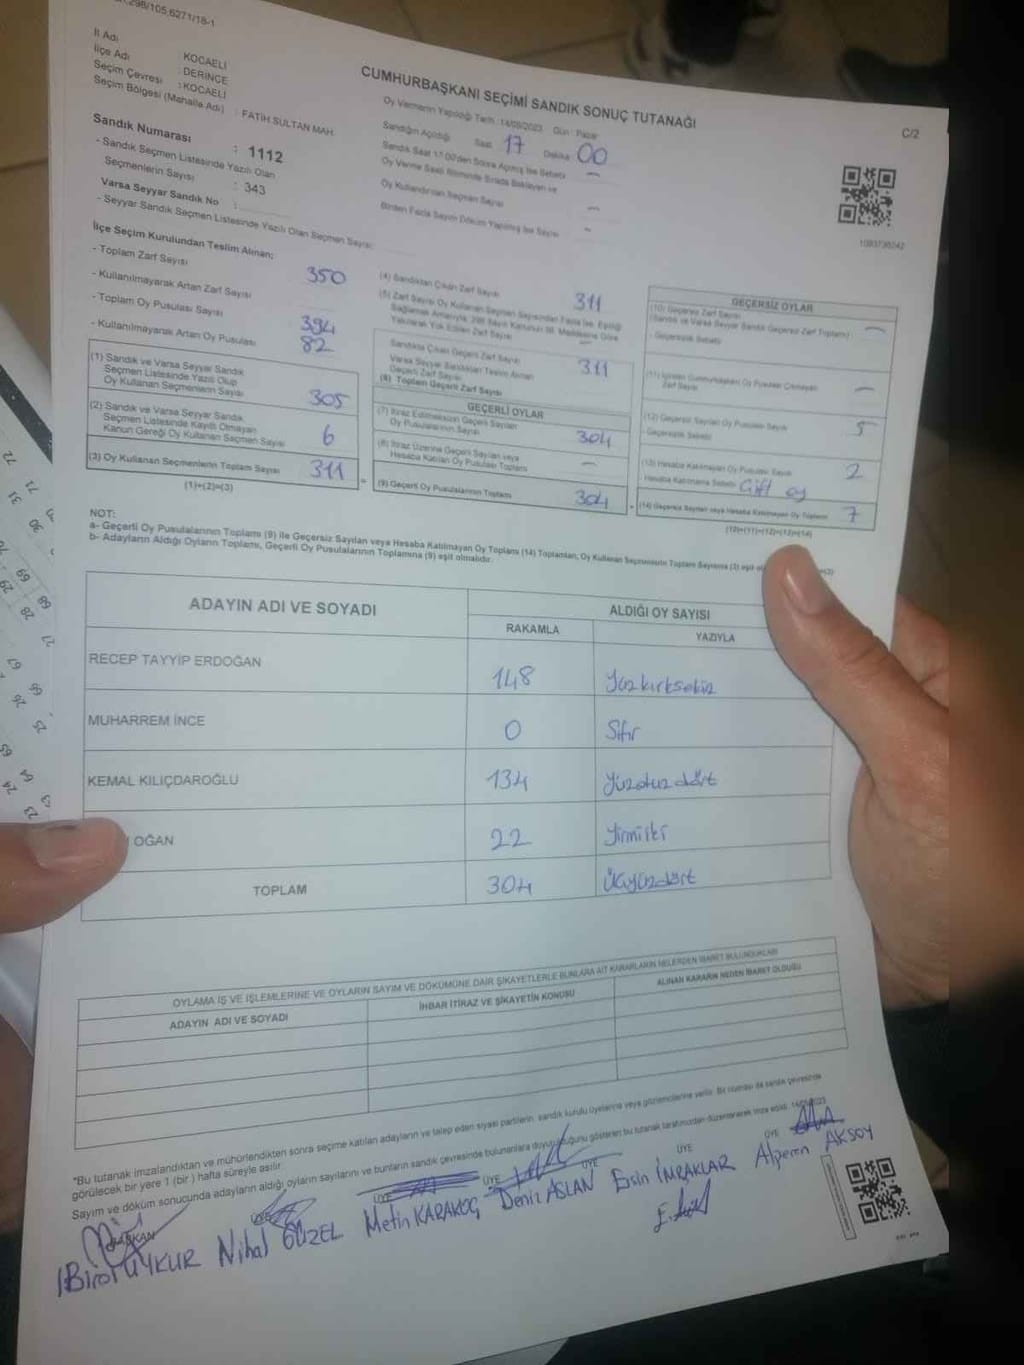 298/105,6271/18-1
İl Adı : KOCAELİ
İlçe Adı : DERİNCE
Seçim Çevresi : KOCAELİ
Seçim Bölgesi (Mahalle Adı) : FATİH SULTAN MAH.
Sandık Numarası : 1112
- Sandık Seçmen Listesinde Yazılı Olan
Seçmenlerin Sayısı : 343
Varsa Seyyar Sandık No :
- Seyyar Sandık Seçmen Listesinde Yazılı Olan Seçmen Sayısı:
CUMHURBAŞKANI SEÇİMİ SANDIK SONUÇ TUTANAĞI
C/2
Oy Vermenin Yapıldığı Tarih : 14/05/2023 Gün : Pazar
Sandığın Açıldığı Saat 17 Dakika 00
Sandık Saat 17:00'den Sonra Açılmış İse Sebebi
Oy Verme Saati Bitiminde Sırada Bekleyen ve
Oy Kullandırılan Seçmen Sayısı
Birden Fazla Sayım Döküm Yapılmış İse Sayısı
İlçe Seçim Kurulundan Teslim Alınan;
- Toplam Zarf Sayısı 350
- Kullanılmayarak Artan Zarf Sayısı
- Toplam Oy Pusulası Sayısı 394
- Kullanılmayarak Artan Oy Pusulası 82
(1) Sandık ve Varsa Seyyar Sandık
Seçmen Listesinde Yazılı Olup
Oy Kullanan Seçmenlerin Sayısı 305
(2) Sandık ve Varsa Seyyar Sandık
Seçmen Listesinde Kayıtlı Olmayan
Kanun Gereği Oy Kullanan Seçmen Sayısı 6
(3) Oy Kullanan Seçmenlerin Toplam Sayısı 311
(1)+(2)=(3)
(4) Sandıktan Çıkan Zarf Sayısı 311
(5) Zarf Sayısı Oy Kullanan Seçmen Sayısından Fazla İse, Eşitliği
Sağlamak Amacıyla, 298 Sayılı Kanunun 98. Maddesine Göre
Yakılarak Yok Edilen Zarf Sayısı
Sandıkta Çıkan Geçerli Zarf Sayısı 311
Varsa Seyyar Sandıktan Teslim Alınan
Geçerli Zarf Sayısı
(6) Toplam Geçerli Zarf Sayısı
GEÇERLİ OYLAR
(7) İtiraz Edilmeksizin Geçerli Sayılan
Oy Pusulasının Sayısı 304
(8) İtiraz Üzerine Geçerli Sayılan veya
Hesaba Katılan Oy Pusulası Toplamı
(9) Geçerli Oy Pusulalarının Toplamı 304
GEÇERSİZ OYLAR
(10) Geçersiz Zarf Sayısı
(Sandık ve Varsa Seyyar Sandık Geçersiz Zarf Toplamı)
- Geçersizlik Sebebi
(11) İçinden Cumhurbaşkanı Oy Pusulası Çıkmayan
Zarf Sayısı
(12) Geçersiz Sayılan Oy Pusulası Sayısı 5
- Geçersizlik Sebebi
(13) Hesaba Katılmayan Oy Pusulası Sayısı 2
- Hesaba Katılmama Sebebi Çift oy
(14) Geçersiz Sayılan veya Hesaba Katılmayan Oy Toplamı 7
(10)+(11)+(12)+(13)=(14)
NOT:
a- Geçerli Oy Pusulalarının Toplamı (9) ile Geçersiz Sayılan veya Hesaba Katılmayan Oy Toplamı (14) Toplamları, Oy Kullanan Seçmenlerin Toplam Sayısına (3) eşit
b- Adayların Aldığı Oyların Toplamı, Geçerli Oy Pusulalarının Toplamına (9) eşit olmalıdır.
ADAYIN ADI VE SOYADI
ALDIĞI OY SAYISI
RAKAMLA YAZIYLA
RECEP TAYYİP ERDOĞAN 148 Yüzkırksekiz
MUHARREM İNCE 0 Sıfır
KEMAL KILIÇDAROĞLU 134 Yüzotuzdört
OĞAN 22 Yirmiiki
TOPLAM 304 Üçyüzdört
OYLAMA İŞ VE İŞLEMLERİNE VE OYLARIN SAYIM VE DÖKÜMÜNE DAİR ŞİKAYETLERLE BUNLARA AİT KARARLARIN NELERDEN İBARET BULUNDUKLARI
ADAYIN ADI VE SOYADI
İHBAR İTİRAZ VE ŞİKAYETİN KONUSU
ALINAN KARARIN NEDEN İBARET OLDUĞU
*Bu tutanak imzalandıktan ve mühürlendikten sonra seçime katılan adayların ve talep eden siyasi partilerin, sandık kurulu üyelerine veya gözlemcilerine verilir. Bir nüshası da sandık çevresinde
görülecek bir yere 1 (bir) hafta süreyle asılır.
Sayım ve döküm sonucunda adayların aldığı oyların sayılarını ve bunların sandık çevresinde bulunanlara duyurulduğunu gösteren bu tutanak tarafımızdan düzenlenerek imza edildi. 14/05/2023
BAŞKAN ÜYE ÜYE ÜYE ÜYE ÜYE ÜYE
Birol UYKUR Nihal GÜZEL Metin KARAKOÇ Deniz ASLAN Ersin İMRAKLAR Alperen AKSOY